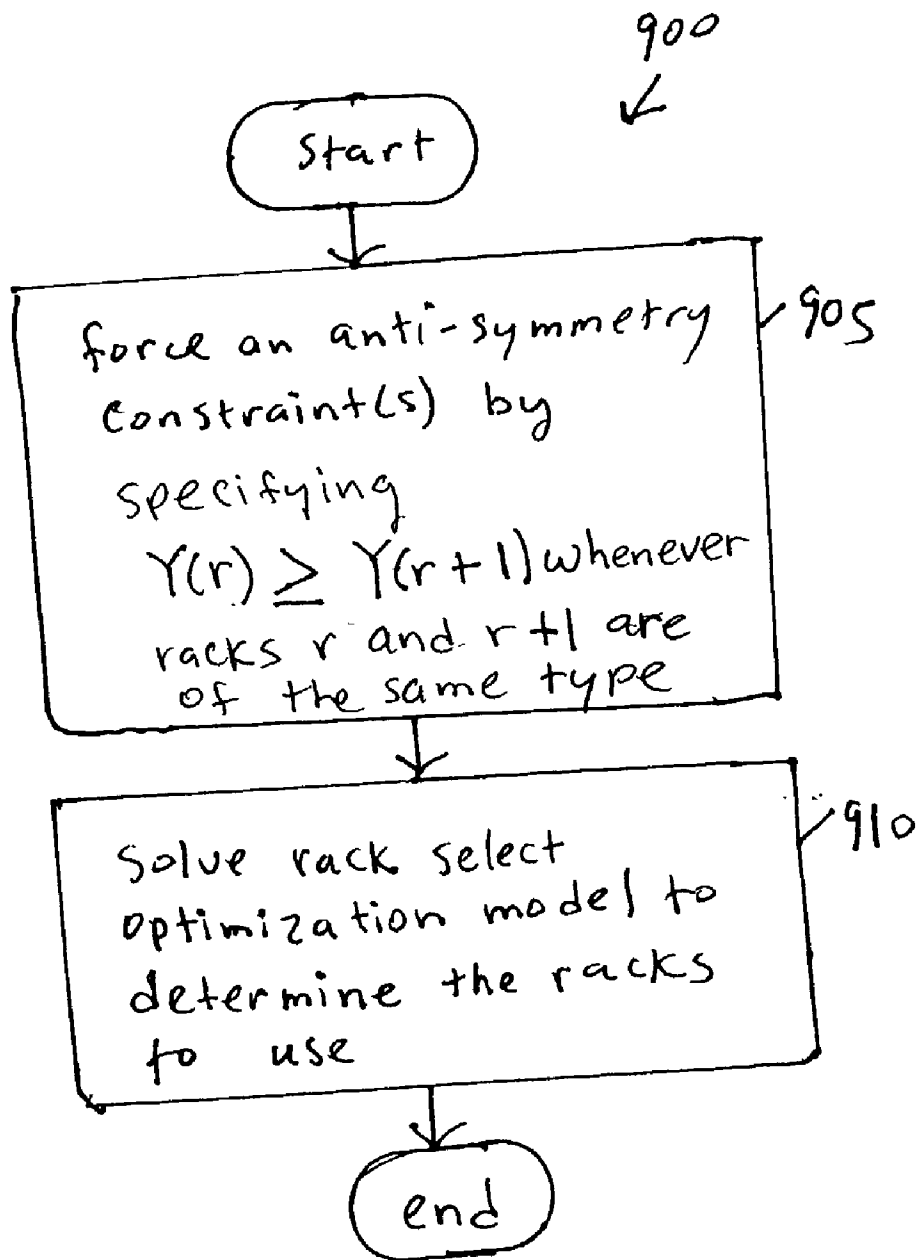 900
Start
force an anti-symmetry
constraint(s) by
specifying
Y(r) ≥ Y(r+1) whenever
racks r and r+1 are
of the same type
905
Solve rack select
optimization model to
determine the racks
to use
910
end